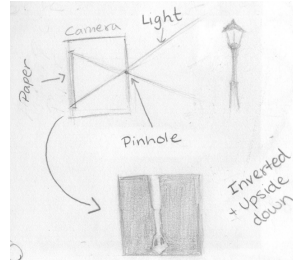 Camera
Light
Paper
Pinhole
Inverted
+ Upside
down